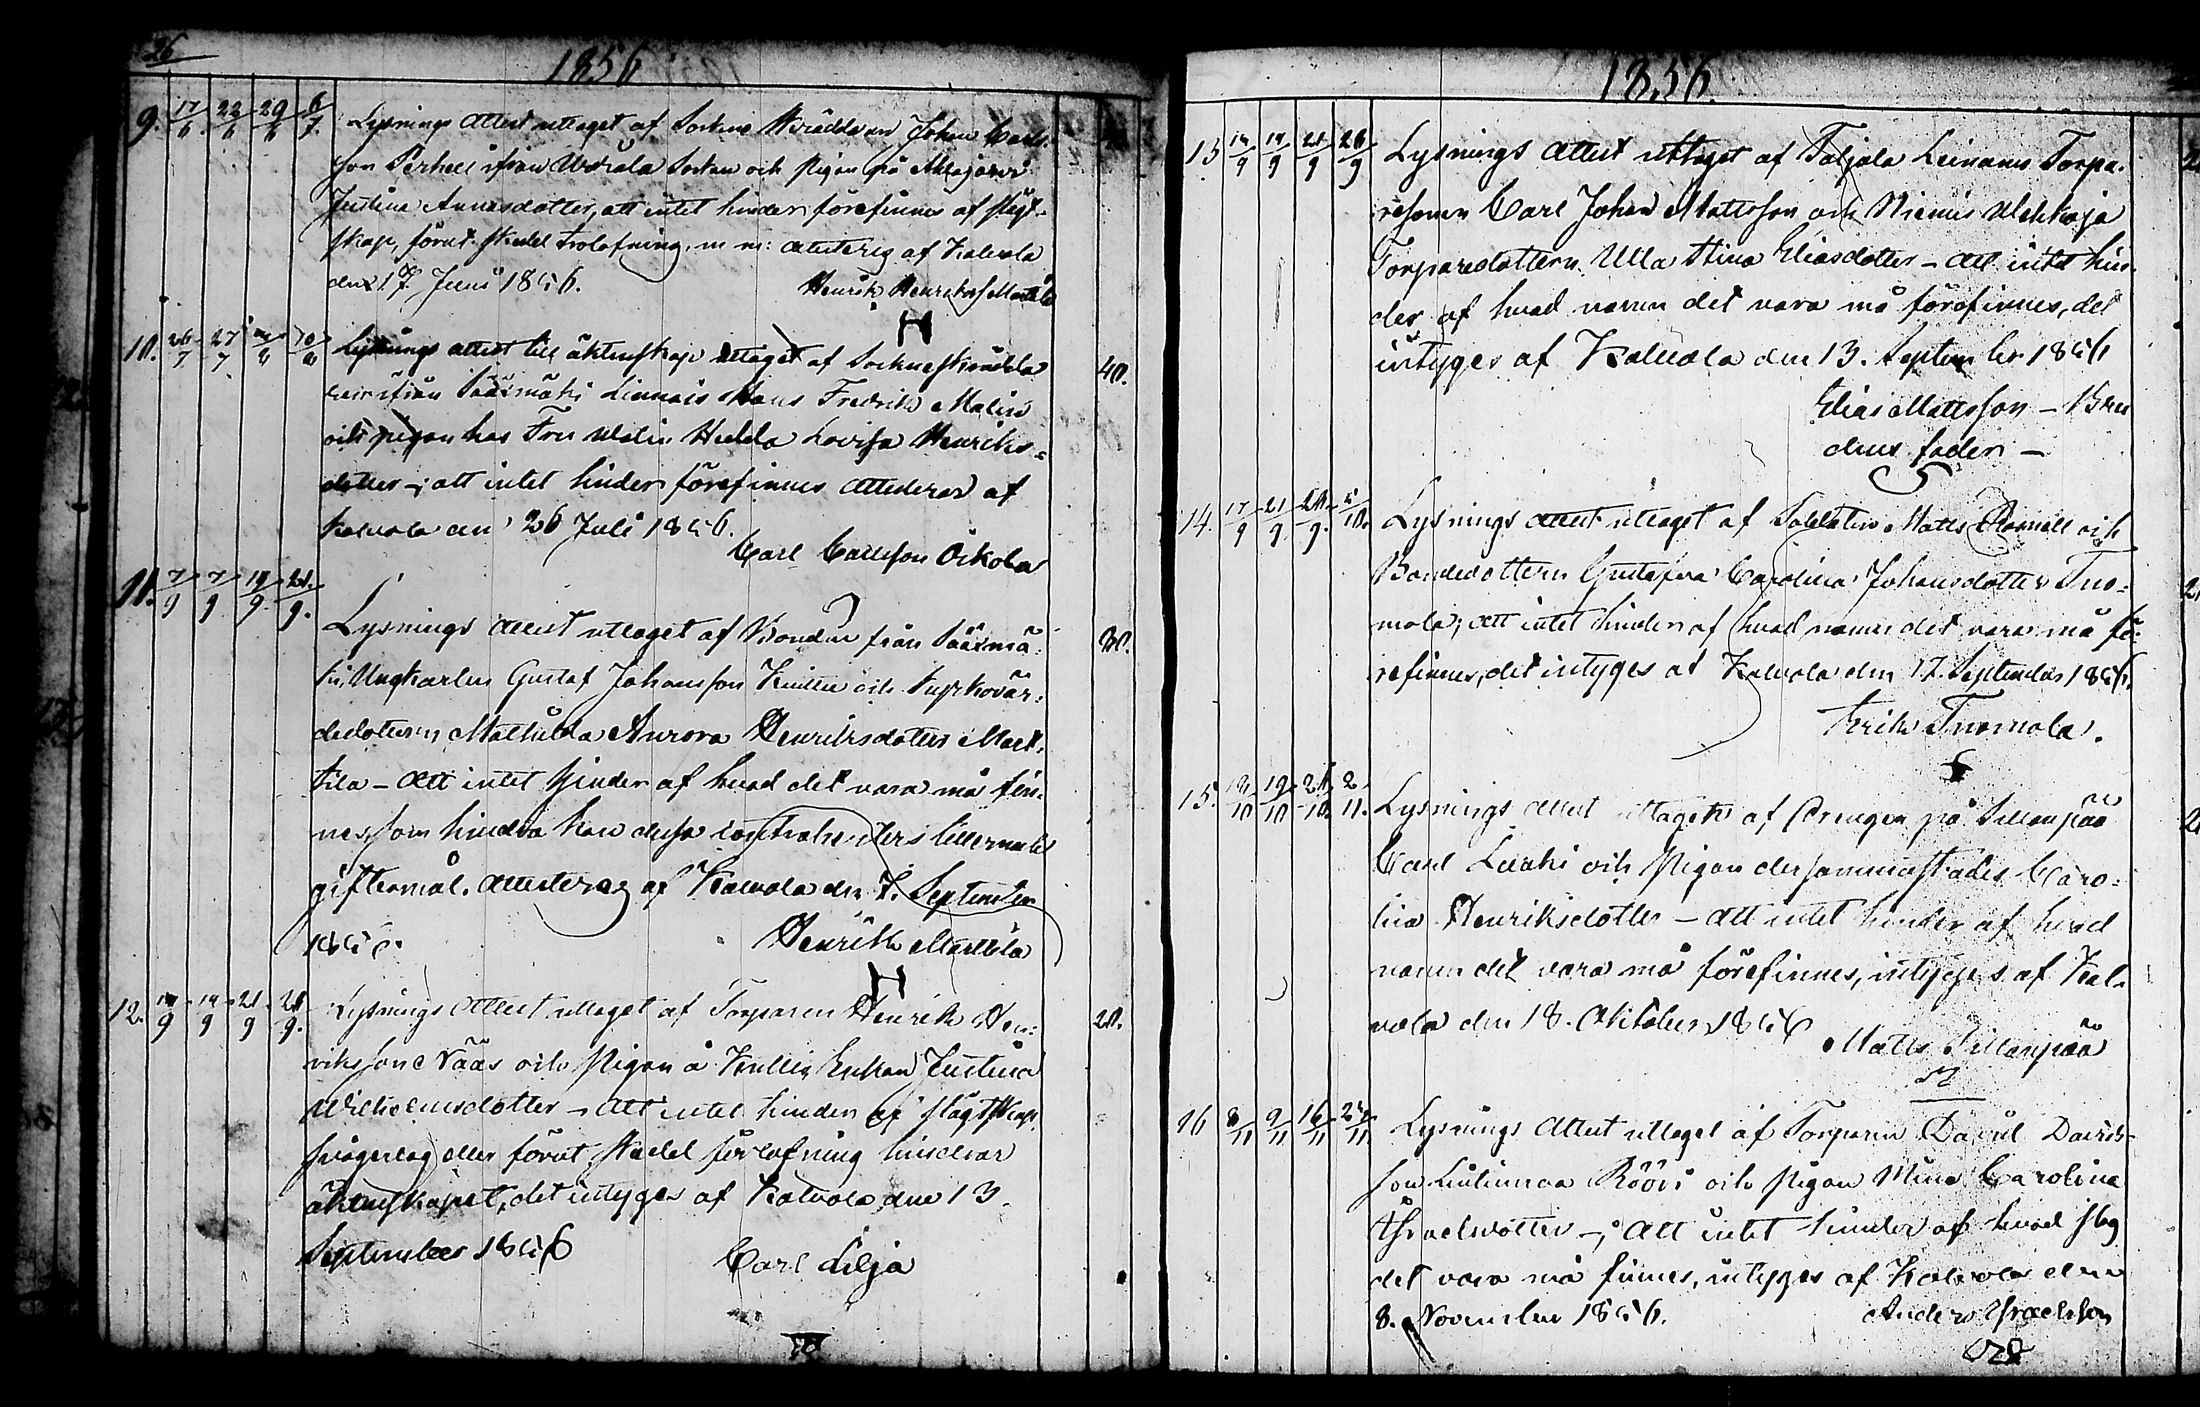 26
1856
9. 17/6 22/6 29/6 6/7. Lysnings Attest uttaget af Sockne Skräddaren Johan Carls-
son Perheel ifrån Urdiala Socken och Pigan på
Justina Annasdotter, att intet hinder förefinnes af slägt-
skap, förut skedd trolofning. m m: Attesteras af Kalvola
den 17 Juni 1856. Henrik Henriksson Marttila
H
10. 26/7 27/7 3/8 10/8 Lysnings attest till äktenskap uttaget af Sockneskrädda-
ren ifrån Sääxmäki Linnais Mans Fredrik Malin 40.
och pigan hos Fru Malin Hedda Lovisa Henriks-
dotter -; att intet hinder förefinnes Attesteras af
Kalvola den 26 Juli 1856.
Carl Carlsson Äikola
11. 7/9 7/9 14/9 21/9. Lysnings Attest uttaget af Bonden från Sääxmä- 30.
ki, Ungkarlen Gustaf Johansson och Kyrkovär-
dedottern Mathilda Aurora Henriksdotter Mart-
tila - Att intet hinder af hvad det vara må fin-
nes, som hindra kan dessa contrahenters tillernade
giftermål. Attesteras af Kalvola den 7. September
1856. Henrik Marttila
H
12. 14/9 14/9 21/9 28/9. Lysnings Attest uttaget af Torparen Henrik Hen- 20.
riksson Nääs och Pigan å Enkan Justina
Wilhelmsdotter - Att intet hinder af slägtskap,
svågerlag eller förut skedd förlofning hindrar
äktenskapet, det intyges af Kalvola den 13.
September 1856 Carl Lilja
1856.
13 14/9 14/9 21/9 28/9 Lysnings Attest uttaget af Taljala Leinams Torpa-
resonen Carl Johan Mattsson och Niemis Ulehkaja
Torparedottern Ulla Stina Eliasdotter - Att intet hin-
der af hvad namn det vara må förefinnes, det
intyges af Kalvola den 13. September 1856
Elias Mattsson - Bru
dens fader -
14. 17/9 21/9 28/9. 5/10. Lysnings Attest uttaget af Soldaten Matts och
Bondedottern Gustafva Carolina Johansdotter Tuo-
mola; att intet hinder af hvad namn det vara må fö-
refinnes, det intyges af Kalvola den 17. September 1856.
Erik Tuomola.
15. 18/10 19/10 26/10. 2/11. Lysnings Attest uttaget af Drengen på Sillanpää
Carl Luuki och Pigan dersammastädes Caro-
lina Henriksdotter - Att intet hinder af hvad
namn det vara må förefinnes, intyges af Kal-
vola den 18. Oktober 1856
Matts Sillanpää
16 8/11 9/11 16/11 23/11 Lysnings Attest uttaget af Torparen David Davids-
son Liutinmaa Rööri och Pigan Mina Carolina
Israelsdotter -; Att intet hinder af hvad slag
det vara må finnes, intyges af Kalvola den
8. November 1856. Anders Israelsson